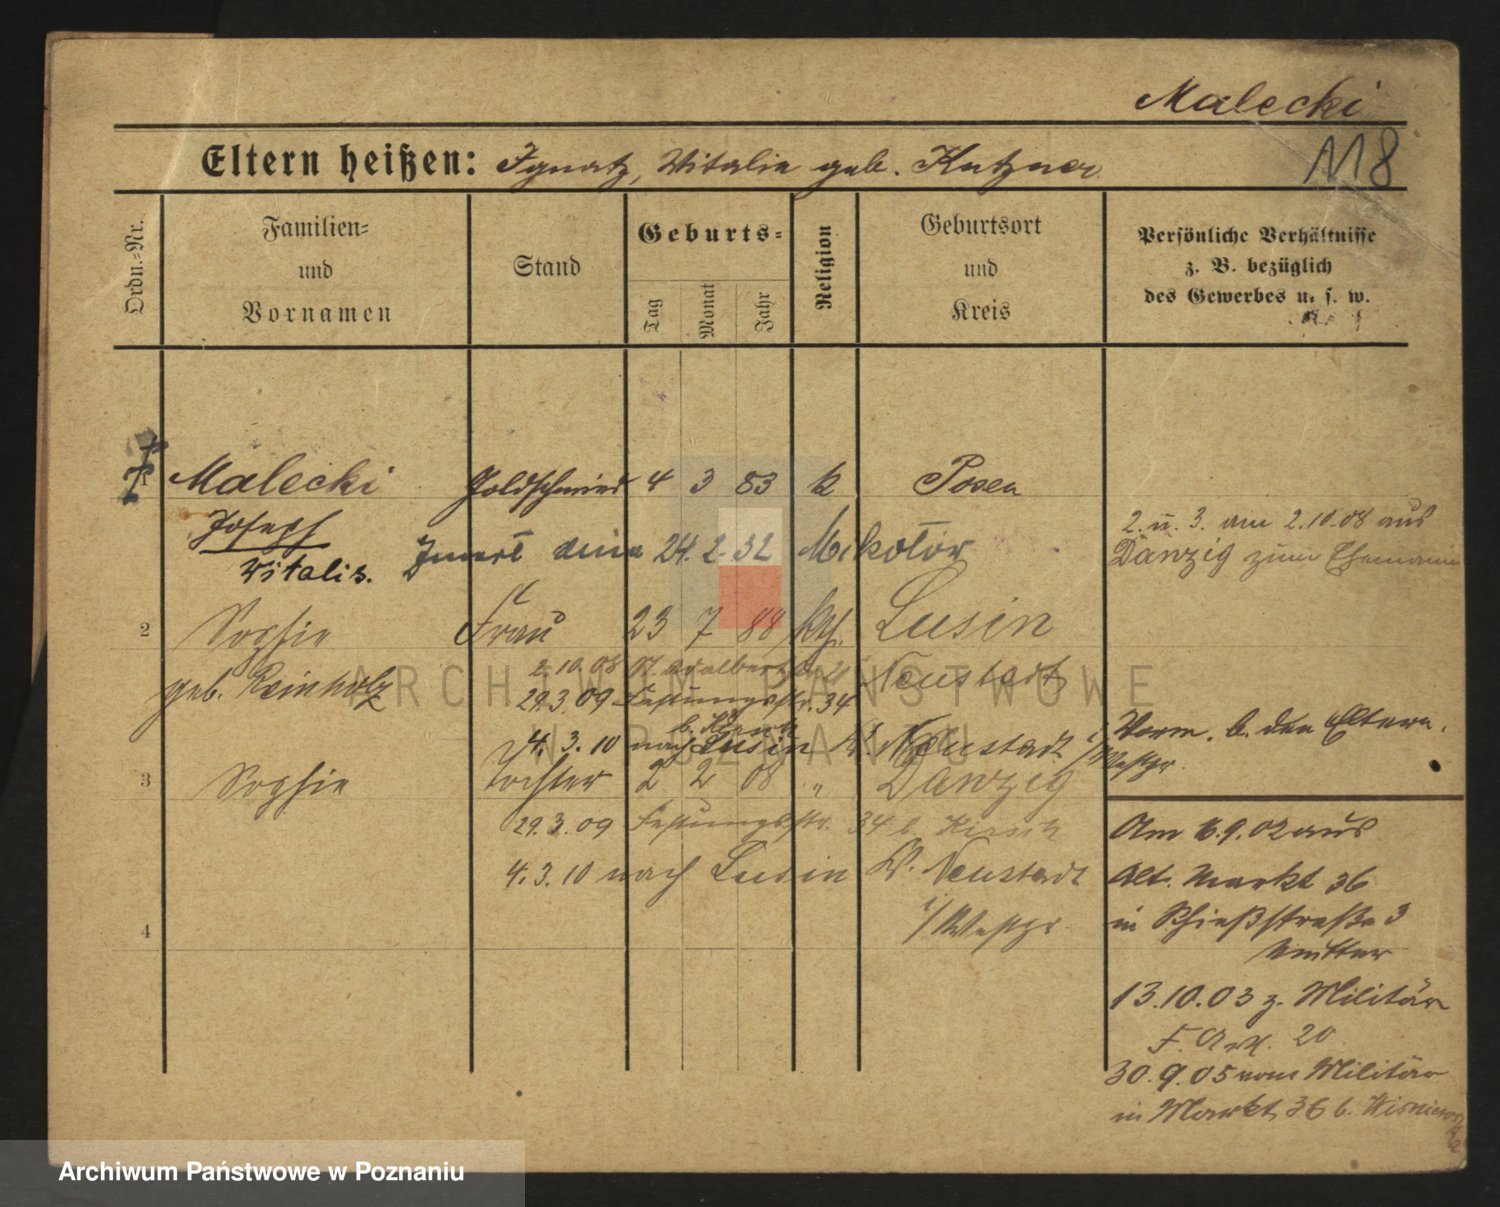 Malecki
118
Eltern heißen: Ignatz, Vitalie geb. Kutzner
Ordn.=Nr.
Familien=
und
Vornamen
Stand
Geburts=
Tag
Monat
Jahr
Religion
Geburtsort
und
Kreis
Persönliche Verhältnisse
z. B. bezüglich
des Gewerbes u. s. w.
Malecki Goldschmied 4 3 83 k Posen
Joseph
Vitalis.
24. 2. 32
2. u. 3. am 2.10.08 aus
Danzig zum Ehemann
2 Sophie Frau 23 7 88 kth. Lusin
geb. Reinholz 2.10.08 Neustadt
29.3.09 Festungsstr. 34
4. 3. 10 nach Lusin Kr. Neustadt i/Westpr.
Vorm. b. den Eltern.
3 Sophie Tochter 2 2 08 " Danzig
29.3.09 Festungsstr. 34 b.
4.3.10 nach Lusin Kr. Neustadt
i/Westpr.
4
Am 6.9.02 aus
Alt. Markt 36
in Schießstraße 3
Mutter
13.10.03 z. Militär
F. Art. 20
30.9.05 vom Militär
in Markt 36 b.
ARCHIWUM PAŃSTWOWE
W POZNANIU
Archiwum Państwowe w Poznaniu